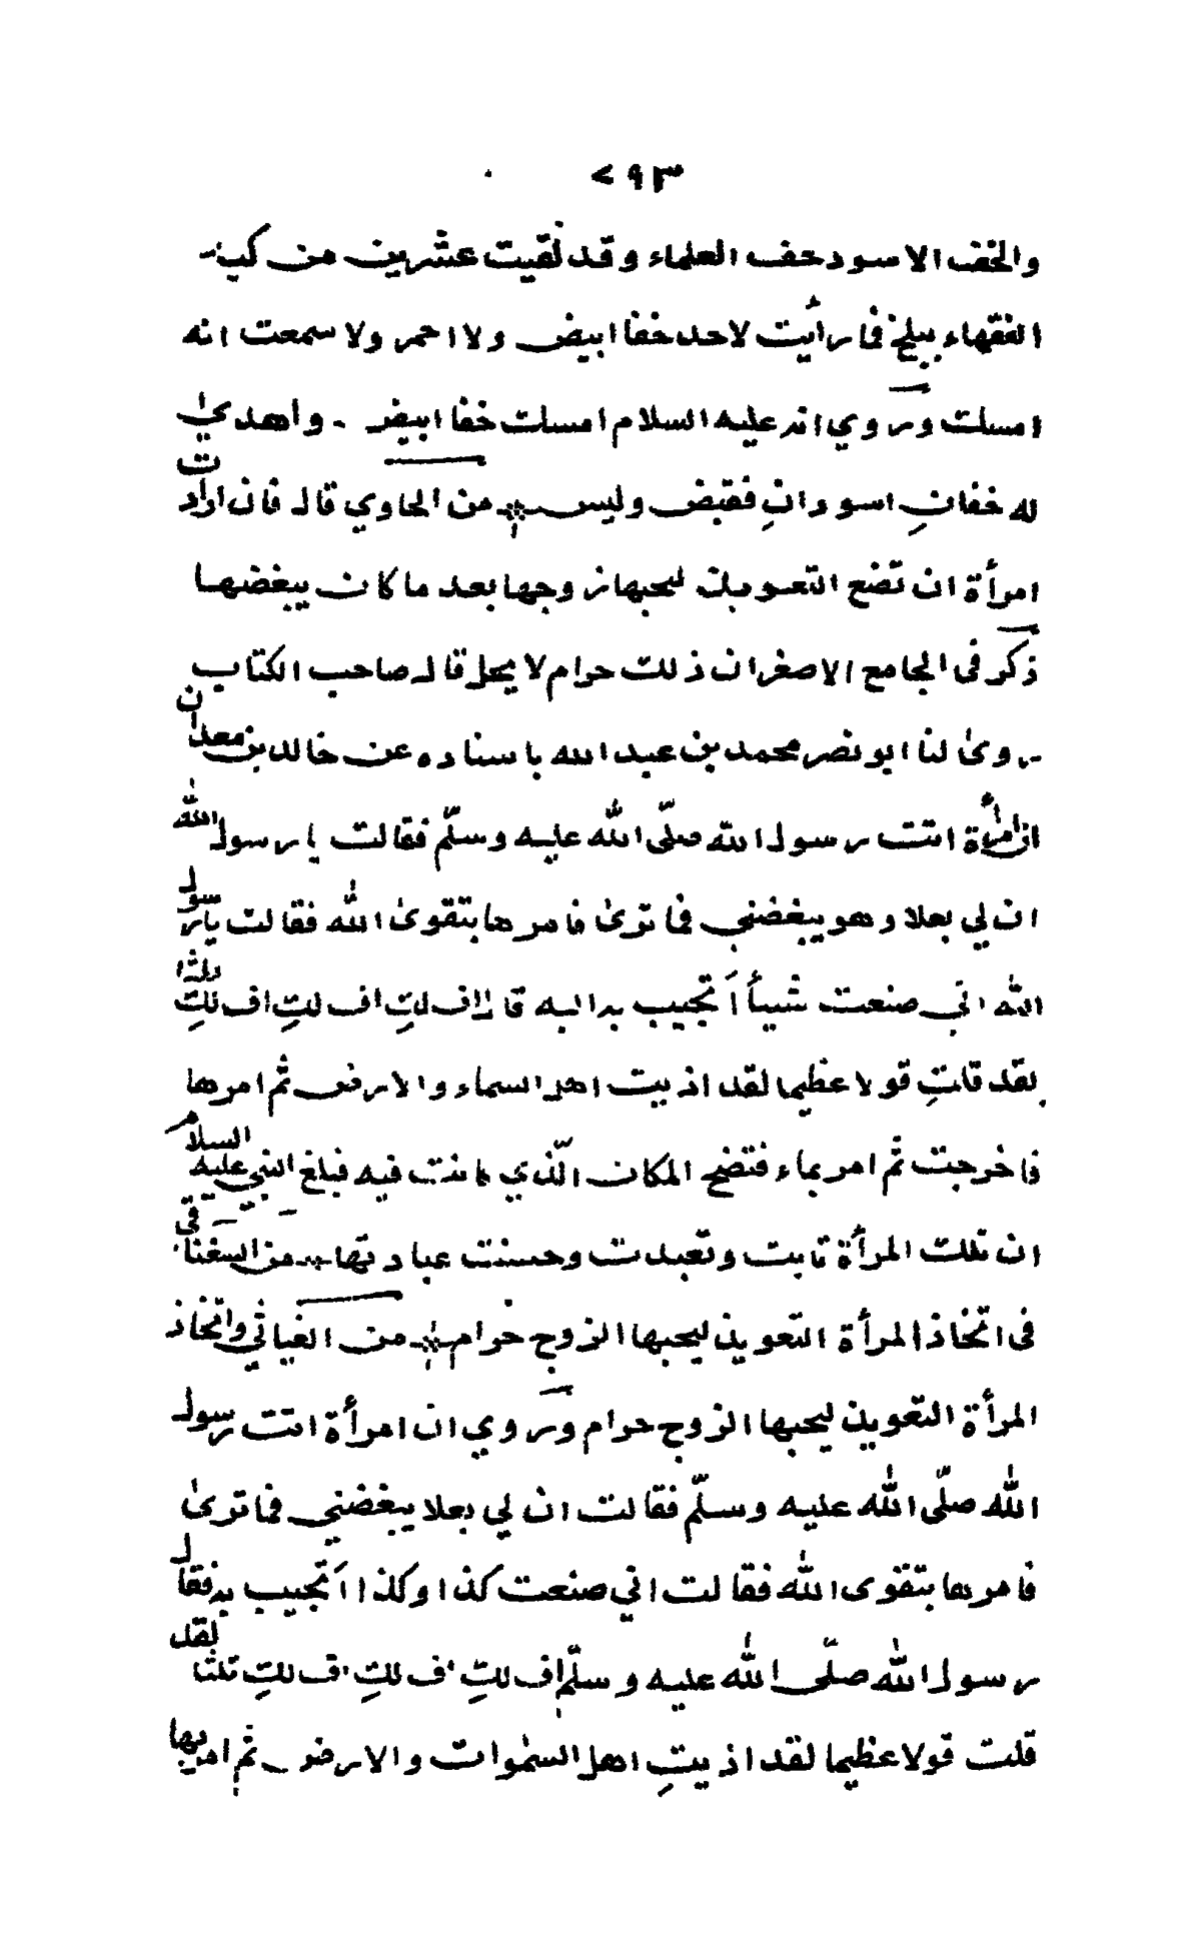 ٧٩٣
والخف الاسود خف العلماء وقد لقيت عشرين من كبـ
الفقهاء ببلخ فما رأيت لاحد خفا ابيض ولا احمر ولا سمعت انه
امسك وروي انه عليه السلام امسك خفا ابيض . واهدى
له خفانِ اسودانِ فقبض وليس من الحاوي قال فان ارادت
امرأة ان تضع التعويذ ليحبها زوجها بعد ما كان يبغضها
ذكر في الجامع الاصغر ان ذلك حرام لا يحل قال صاحب الكتاب
روى لنا ابو نصر محمد بن عبد الله باسناده عن خالد بن معدان
ان امرأة اتت رسول الله صلّى الله عليه وسلّم فقالت يا رسول الله
ان لي بعلا وهو يبغضني فما ترى فامرها بتقوى الله فقالت يا رسول
الله اني صنعت شيأ أتحبب به اليه قال اف لكِ اف لكِ اف لكِ ثلثا
لقد قلتِ قولا عظيما لقد اذيت اهل السماء والارض ثم امرها
فاخرجت ثم امر بماء فنضح المكان الّذي كانت فيه فبلغ النبي عليه السلام
ان تلك المرأة تابت وتعبدت وحسنت عبادتها من السغناقي
في اتخاذ المرأة التعويذ ليحبها الزوج حرام من الغياثي واتخاذ
المرأة التعويذ ليحبها الزوج حرام وروي ان امرأة اتت رسول
الله صلّى الله عليه وسلّم فقالت ان لي بعلا يبغضني فما ترى
فامرها بتقوى الله فقالت اني صنعت كذا وكذا أتحبب به فقال
رسول الله صلّى الله عليه وسلّم اف لكِ اف لكِ اف لكِ ثلثا لقد
قلت قولا عظيما لقد اذيتِ اهل السموات والارض ثم امر بها